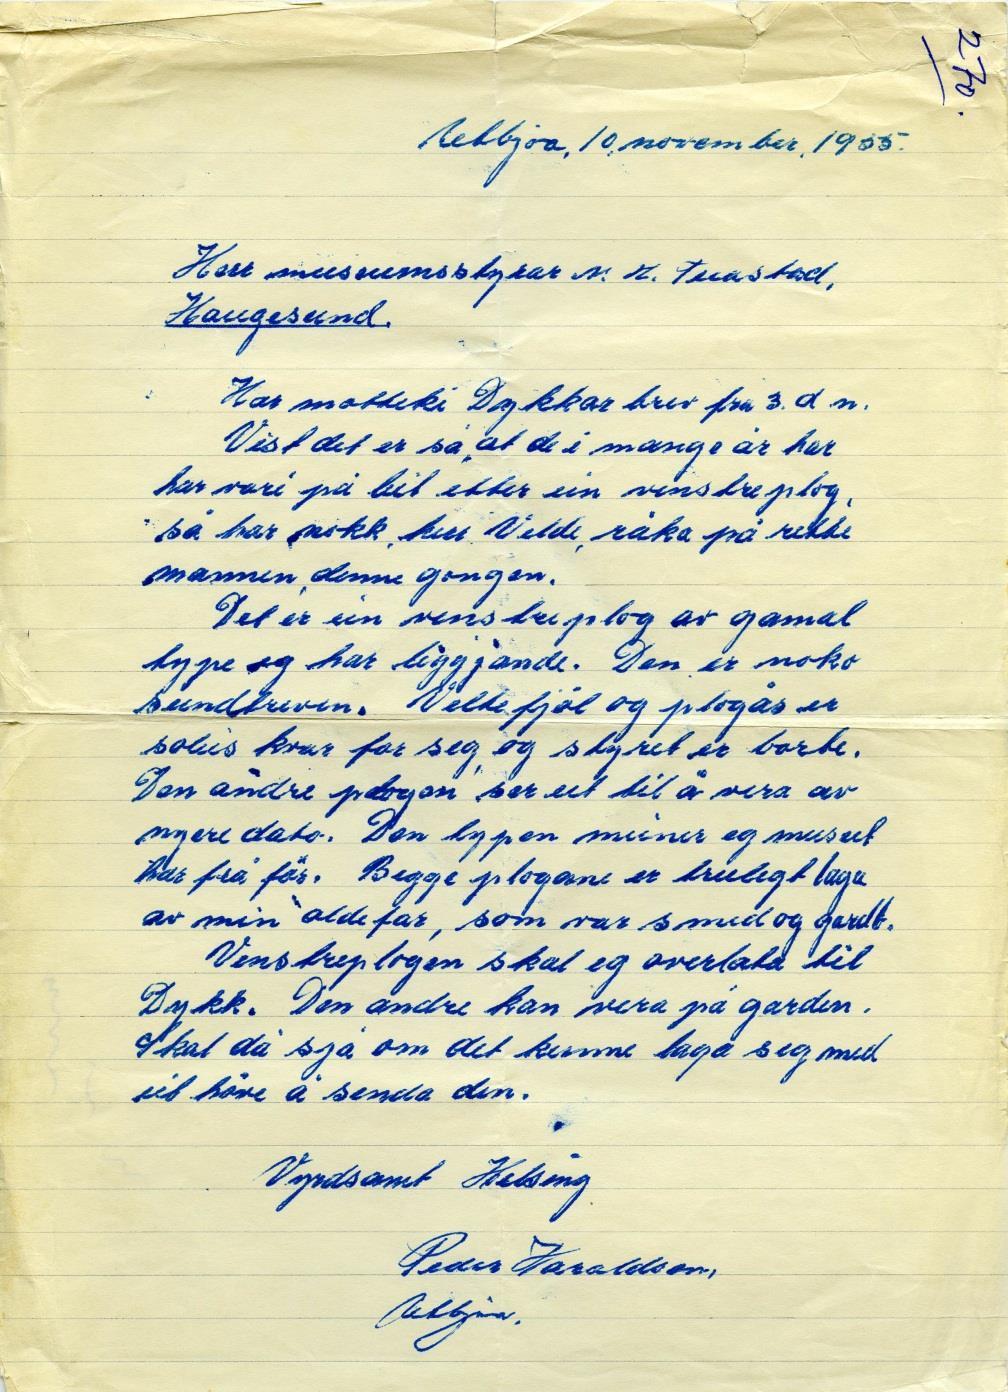 270.
Utbjoa, 10. november, 1955.
Herr museumsstyrar N. H. Tuastad,
Haugesund.
Har motteki Dykkar brev frå 3. d. n.
Vist det er så, at de i mange år har
har vori på leit etter ein vinstreplog,
så har nokk, herr Velde, råka på rette
mannen, denne gongen.
Det er ein venstreplog av gamal
type eg har liggjande. Den er noko
sundreven. Veltefjøl og plogås er
solies kvar for seg, og styret er borte.
Den andre plogen ser ut til å vera av
nyere dato. Den typen meiner eg museet
har frå før. Begge plogane er trulegt laga
av min oldefar, som var smed og gardb.
Venstreplogen skal eg overlata til
Dykk. Den andre kan vera på garden.
Skal då sjå om det kunne laga seg med
eit høve å senda den.
Vyrdsamt Helsing
Peder Haraldson,
Utbjoa.